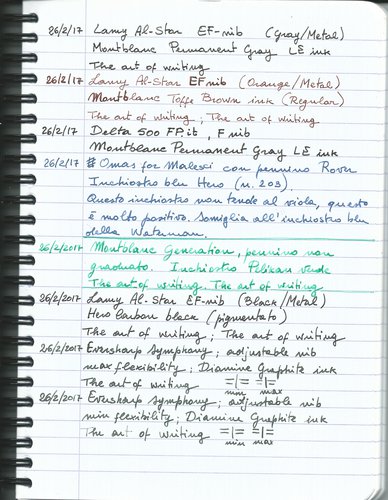 26/2/17 Lamy Al-Star EF-nib (Gray/Metal)
Montblanc Permanent Gray LE ink
The art of writing
26/2/17 Lamy Al-Star EF nib (Orange/Metal)
Montblanc Toffe Brown ink (Regular)
The art of writing ; The art of writing
26/2/17 Delta 500 FP.it , F nib
Montblanc Permanent Gray LE ink
26/2/17 # Omas for Malesci con pennino Rover
Inchiostro blu Hero (n. 203).
Questo inchiostro non tende al viola, questo
è molto positivo. Somiglia all'inchiostro blu
della Waterman.
26/2/2017 Montblanc Generation, pennino non
graduato. Inchiostro Pelikan verde
The art of writing. The art of writing
26/2/2017 Lamy Al-Star EF-nib (Black/Metal)
Hero Carbon black (pigmentato)
The art of writing ; The art of writing
26/2/2017 Eversharp Symphony; adjustable nib
max flexibility; Diamine Graphite ink
The art of writing =|= =|=
min max
26/2/2017 Eversharp Symphony; adjustable nib
min flexibility; Diamine Graphite ink
The art of writing =|= =|=
min max